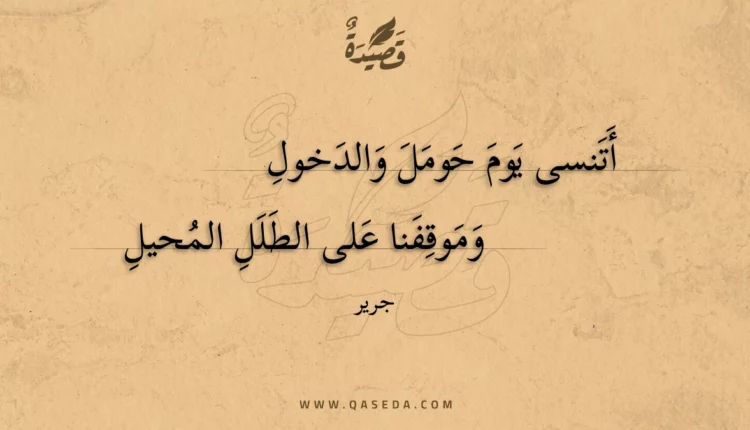 قَصِيدَةٌ
أَتَنسى يَومَ حَومَلَ وَالدَخولِ
وَمَوقِفَنا عَلى الطَلَلِ المُحيلِ
جرير
WWW.QASEDA.COM